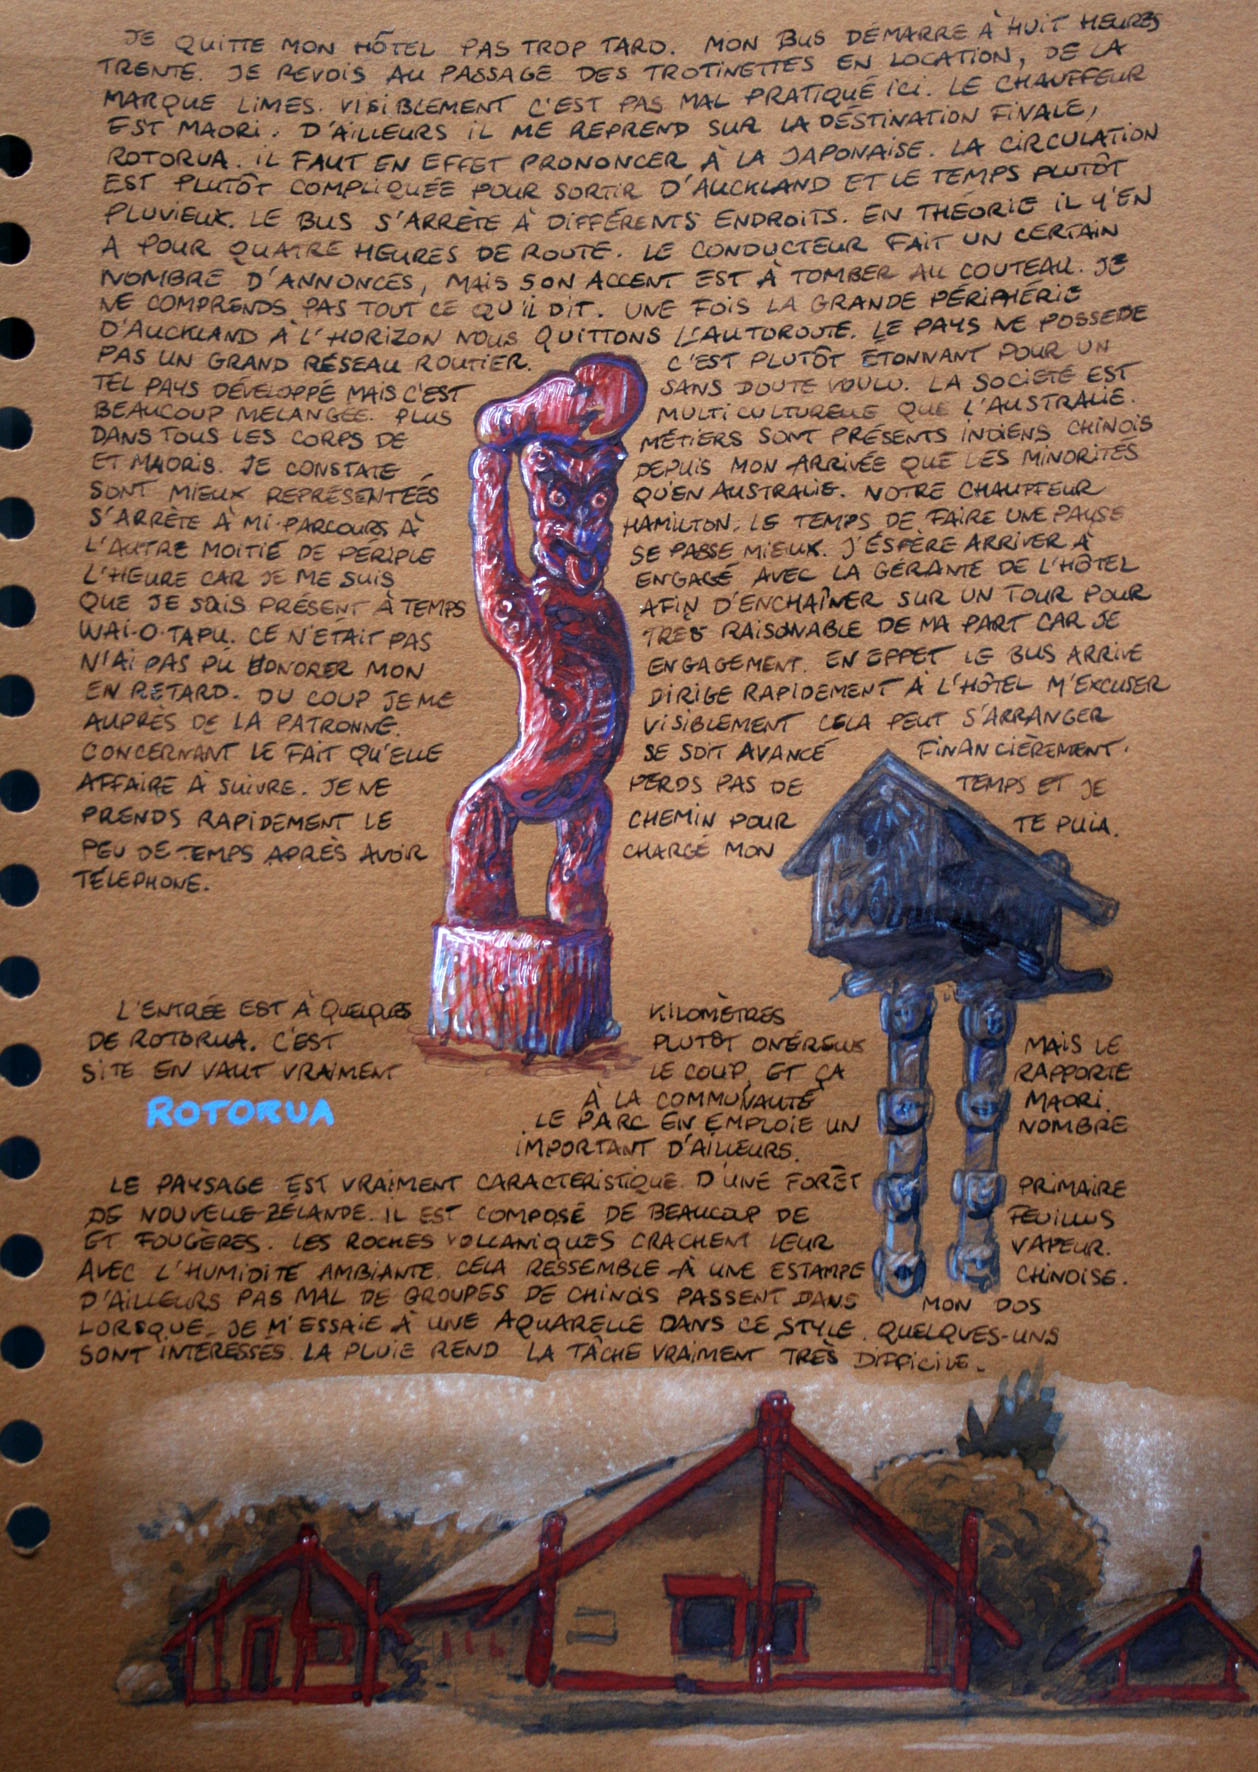 JE QUITTE MON HÔTEL PAS TROP TARD. MON BUS DÉMARRE À HUIT HEURES
TRENTE. JE REVOIS AU PASSAGE DES TROTINETTES EN LOCATION, DE LA
MARQUE LIMES. VISIBLEMENT C'EST PAS MAL PRATIQUÉ ICI. LE CHAUFFEUR
EST MAORI. D'AILLEURS IL ME REPREND SUR LA DESTINATION FINALE,
ROTORUA. IL FAUT EN EFFET PRONONCER À LA JAPONAISE. LA CIRCULATION
EST PLUTÔT COMPLIQUÉE POUR SORTIR D'AUCKLAND ET LE TEMPS PLUTÔT
PLUVIEUX. LE BUS S'ARRÊTE À DIFFÉRENTS ENDROITS. EN THÉORIE IL Y'EN
A POUR QUATRE HEURES DE ROUTE. LE CONDUCTEUR FAIT UN CERTAIN
NOMBRE D'ANNONCES, MAIS SON ACCENT EST À TOMBER AU COUTEAU. JE
NE COMPRENDS PAS TOUT CE QU'IL DIT. UNE FOIS LA GRANDE PÉRIPHÉRIE
D'AUCKLAND À L'HORIZON NOUS QUITTONS L'AUTOROUTE. LE PAYS NE POSSEDE
PAS UN GRAND RÉSEAU ROUTIER. C'EST PLUTÔT ÉTONNANT POUR UN
TEL PAYS DÉVELOPPÉ MAIS C'EST SANS DOUTE VOULU. LA SOCIÉTÉ EST
BEAUCOUP MELANGÉE. PLUS MULTICULTURELLE QUE L'AUSTRALIE.
DANS TOUS LES CORPS DE MÉTIERS SONT PRÉSENTS INDIENS, CHINOIS
ET MAORIS. JE CONSTATE DEPUIS MON ARRIVÉE QUE LES MINORITÉS
SONT MIEUX REPRÉSENTÉES QU'EN AUSTRALIE. NOTRE CHAUFFEUR
S'ARRÈTE À MI-PARCOURS À HAMILTON. LE TEMPS DE FAIRE UNE PAUSE
L'AUTRE MOITIÉ DE PÉRIPLE SE PASSE MIEUX. J'ÉSPÈRE ARRIVER À
L'HEURE CAR JE ME SUIS ENGAGÉ AVEC LA GÉRANTE DE L'HÔTEL
QUE JE SOIS PRÉSENT À TEMPS AFIN D'ENCHAÎNER SUR UN TOUR POUR
WAI-O-TAPU. CE N'ÉTAIT PAS TRÈS RAISONABLE DE MA PART CAR JE
N'AI PAS PÛ HONORER MON ENGAGEMENT. EN EFFET LE BUS ARRIVE
EN RETARD. DU COUP JE ME DIRIGE RAPIDEMENT À L'HÔTEL M'EXCUSER
AUPRÈS DE LA PATRONNE. VISIBLEMENT CELA PEUT S'ARRANGER
CONCERNANT LE FAIT QU'ELLE SE SOIT AVANCÉ FINANCIÈREMENT.
AFFAIRE À SUIVRE. JE NE PERDS PAS DE TEMPS ET JE
PRENDS RAPIDEMENT LE CHEMIN POUR TE PUIA.
PEU DE TEMPS APRÈS AVOIR CHARGÉ MON
TÉLÉPHONE.
L'ENTRÉE EST À QUELQUES KILOMÈTRES
DE ROTORUA. C'EST PLUTÔT ONÉREUX MAIS LE
SITE EN VAUT VRAIMENT LE COUP, ET ÇA RAPPORTE
À LA COMMUNAUTÉ MAORI.
ROTORUA
LE PARC EN EMPLOIE UN NOMBRE
IMPORTANT D'AILLEURS.
LE PAYSAGE EST VRAIMENT CARACTERISTIQUE D'UNE FORÊT PRIMAIRE
DE NOUVELLE-ZÉLANDE. IL EST COMPOSÉ DE BEAUCOUP DE FEUILLUS
ET FOUGÈRES. LES ROCHES VOLCANIQUES CRACHENT LEUR VAPEUR.
AVEC L'HUMIDITÉ AMBIANTE CELA RESSEMBLE À UNE ESTAMPE CHINOISE.
D'AILLEURS PAS MAL DE GROUPES DE CHINOIS PASSENT DANS MON DOS
LORSQUE JE M'ESSAIE À UNE AQUARELLE DANS CE STYLE. QUELQUES-UNS
SONT INTERESSÉS. LA PLUIE REND LA TÂCHE VRAIMENT TRÈS DIFFICILE.